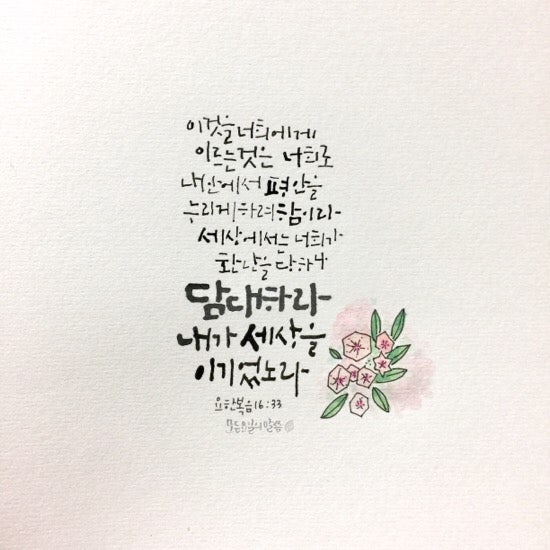 이것을 너희에게
이르는 것은 너희로
내 안에서 평안을
누리게 하려 함이라
세상에서는 너희가
환난을 당하나
담대하라
내가 세상을
이기었노라
요한복음 16:33